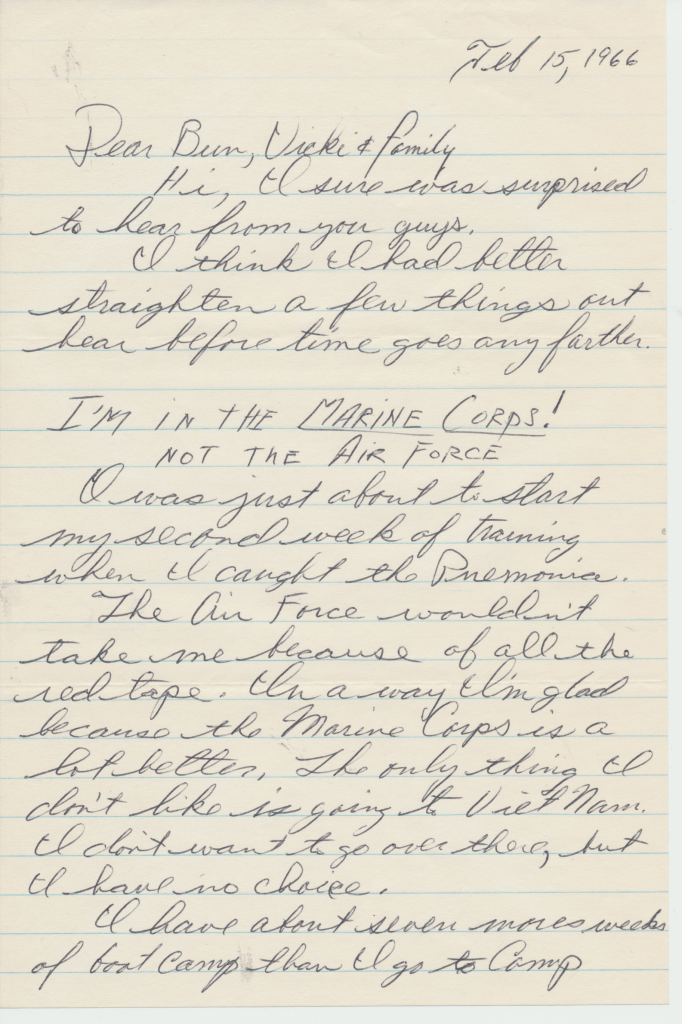 Feb 15, 1966
Dear Bun, Vicki & family
Hi, I sure was surprised
to hear from you guys.
I think I had better
straighten a few things out
hear before time goes any farther.
I'M IN THE MARINE CORPS!
NOT THE AIR FORCE
I was just about to start
my second week of training
when I caught the Pnemonia.
The Air Force wouldn't
take me because of all the
red tape. In a way I'm glad
because the Marine Corps is a
lot better. The only thing I
don't like is going to Viet Nam.
I don't want to go over there, but
I have no choice.
I have about seven mores weeks
of boot camp than I go to Camp